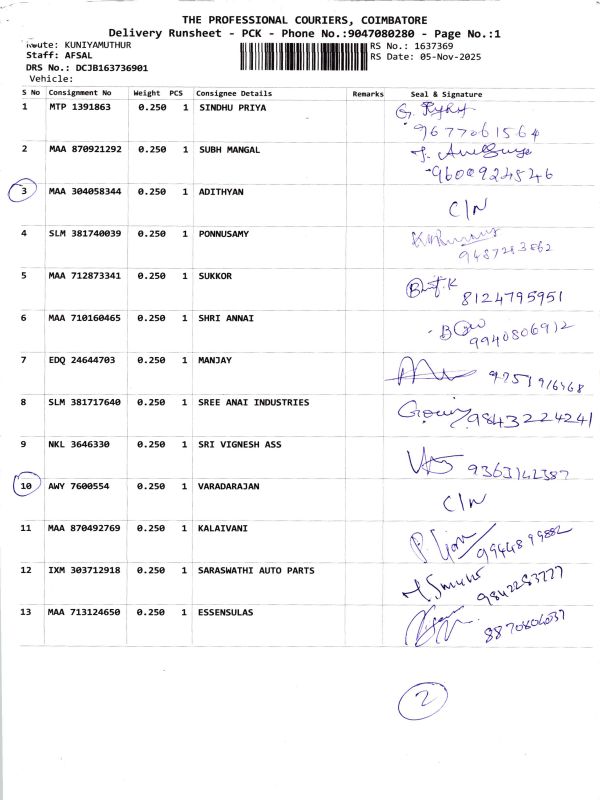 THE PROFESSIONAL COURIERS, COIMBATORE
Delivery Runsheet - PCK - Phone No.:9047080280 - Page No.:1
Route: KUNIYAMUTHUR
RS No.: 1637369
Staff: AFSAL
RS Date: 05-Nov-2025
DRS No.: DCJB163736901
Vehicle:
S No Consignment No Weight PCS Consignee Details Remarks Seal & Signature
1 MTP 1391863 0.250 1 SINDHU PRIYA
9677061564
2 MAA 870921292 0.250 1 SUBH MANGAL
96009224546
3 MAA 304058344 0.250 1 ADITHYAN C/N
4 SLM 381740039 0.250 1 PONNUSAMY
5 MAA 712873341 0.250 1 SUKKOR
8124795951
6 MAA 710160465 0.250 1 SHRI ANNAI
9940806912
7 EDQ 24644703 0.250 1 MANJAY
8 SLM 381717640 0.250 1 SREE ANAI INDUSTRIES 9843224241
9 NKL 3646330 0.250 1 SRI VIGNESH ASS
9363142387
10 AWY 7600554 0.250 1 VARADARAJAN C/N
11 MAA 870492769 0.250 1 KALAIVANI
12 IXM 303712918 0.250 1 SARASWATHI AUTO PARTS
13 MAA 713124650 0.250 1 ESSENSULAS
2